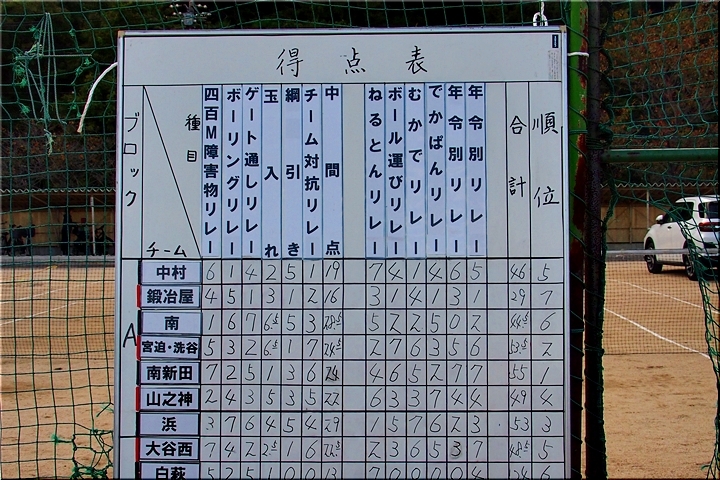 得点表
ブロック 種目 チーム 四百M障害物リレー ボーリングリレー ゲート通しリレー 玉入れ 綱引き チーム対抗リレー 中間点 ねるとんリレー ボール運びリレー むかでリレー でかぱんリレー 年令別リレー 年令別リレー 合計 順位
A
中村 6 1 4 2 5 1 19 7 4 1 4 6 5 46 5
鍛冶屋 4 5 1 3 1 2 16 3 1 4 1 3 1 29 7
南 1 6 7 6.5 5 3 28.5 5 2 2 5 0 2 44.5 6
宮迫・洗谷 5 3 2 6.5 1 7 24.5 2 7 6 3 5 6 53.5 2
南新田 7 2 5 1 3 6 24 4 6 5 2 7 7 55 1
山之神 2 4 3 5 3 5 22 6 3 3 7 4 4 49 4
浜 3 7 6 4 5 4 29 1 5 7 6 2 3 53 3
大谷西 7 4 2 2.5 1 6 22.5 2 3 6 5 3 7 48.5 5
白萩 5 2 5 1 0 0 13 7 0 0 0 0 4 24 6